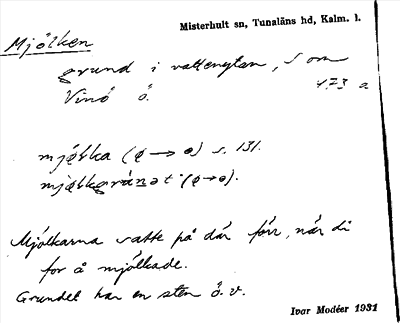 Misterhult sn, Tunaläns hd, Kalm. l.
Mjölken
grund i vattenytan, S om
Vinö ö. 473 a
mjølka (ø → ə) s. 131.
mjølkgránət (ø→ə).
Mjölkarna satte på där förr, när di
for å mjölkade.
Grundet har en sten ö. v.
Ivar Modéer 1931